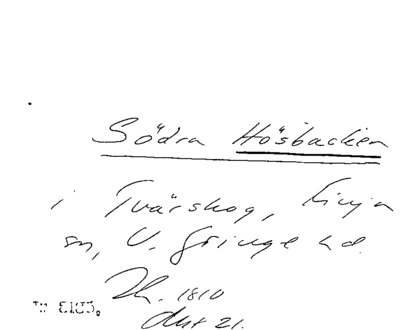 Södra Hösbacken
i Tvärskog, Finja
sn, V. Göinge hd.
Lh. 1810
Akt 21.